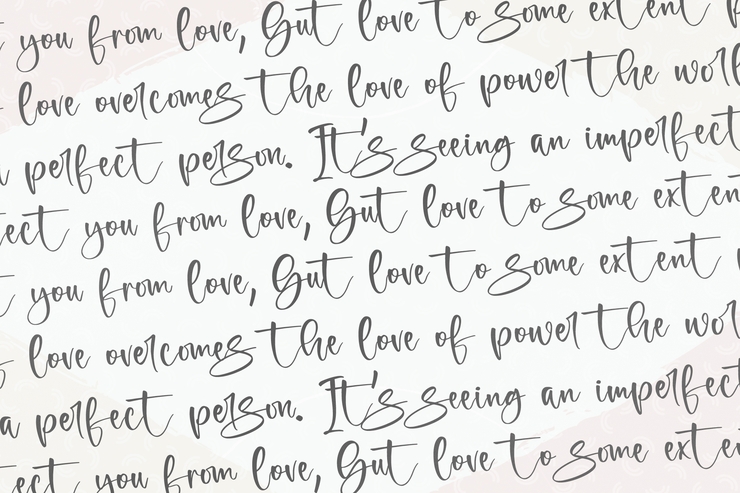 you from love, Gut love to some extent
love overcomes the love of power the
a perfect person. It's seeing an imperfect
ect you from love, Gut love to some exten
you from love, Gut love to some extent
love overcomes the love of power the wor
a perfect person. It's seeing an imperfect
ect you from love, Gut love to some exten